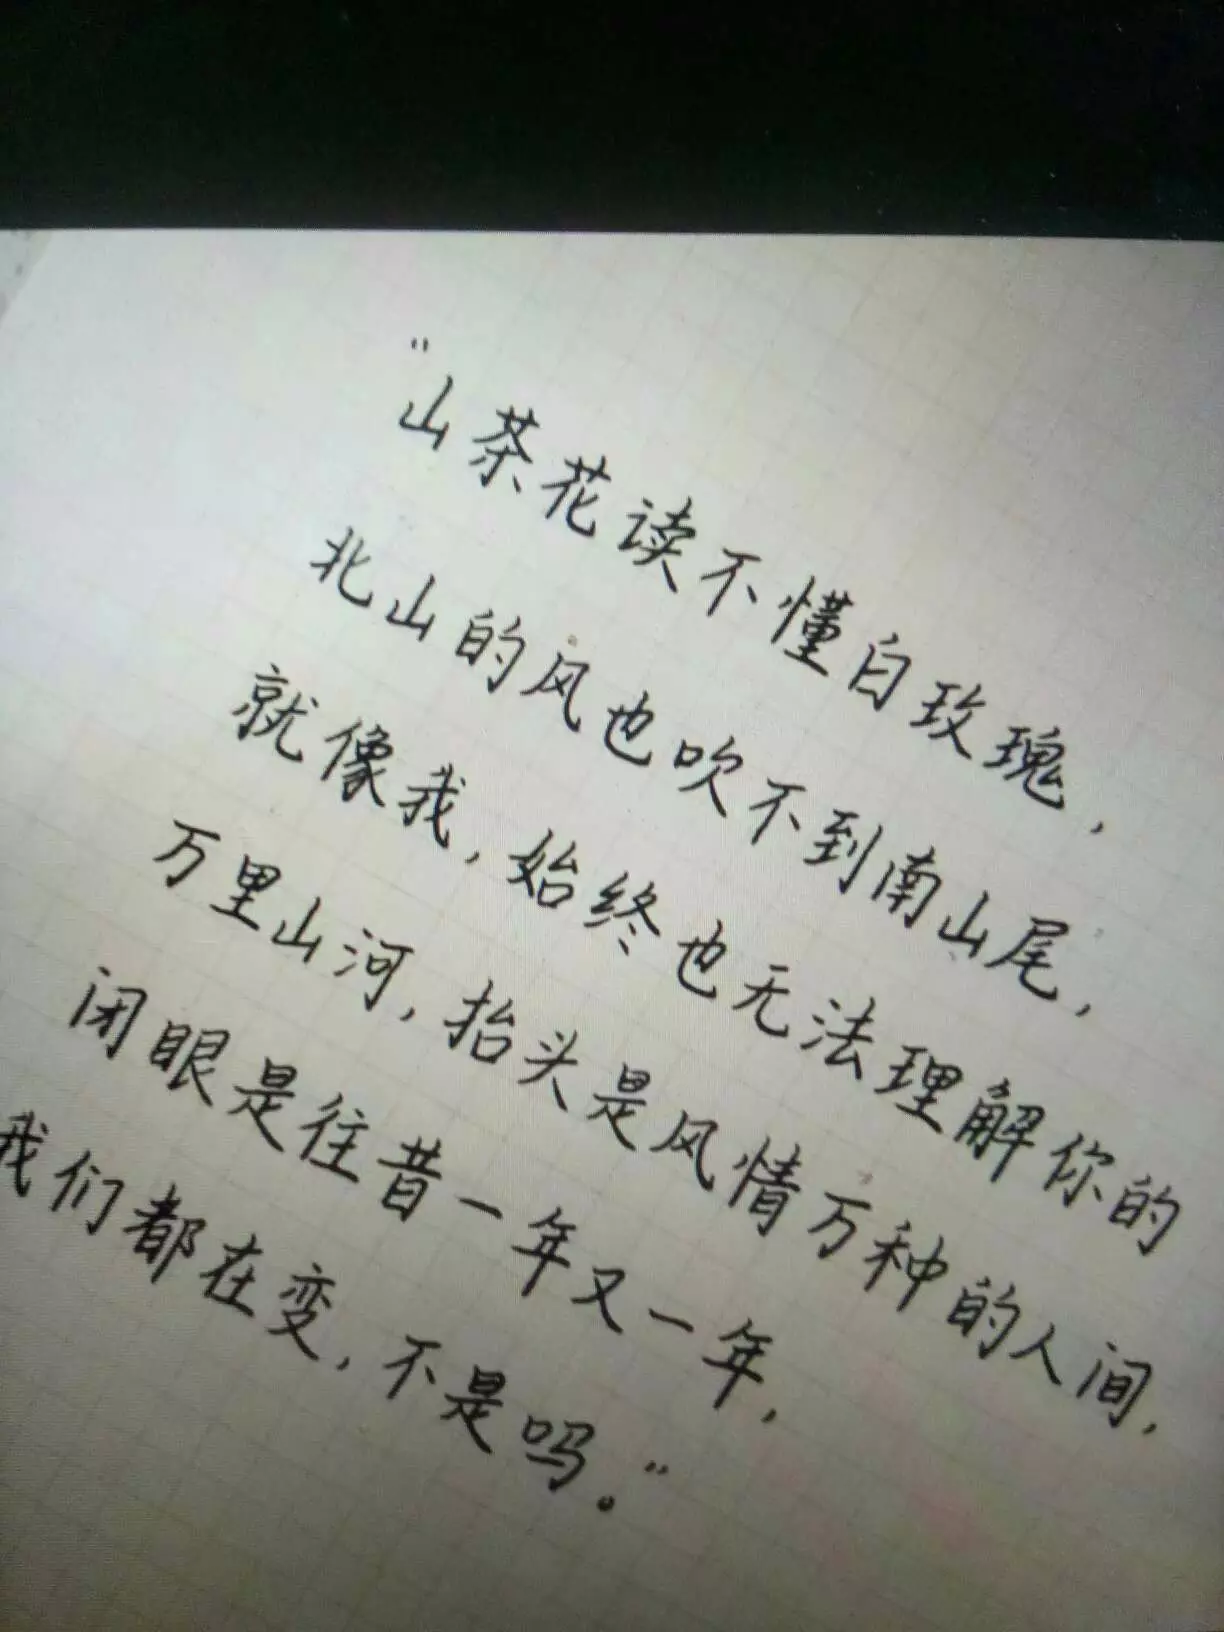 "山茶花读不懂白玫瑰，
北山的风也吹不到南山尾，
就像我，始终也无法理解你的
万里山河，抬头是风情万种的人间，
闭眼是往昔一年又一年，
我们都在变，不是吗。"